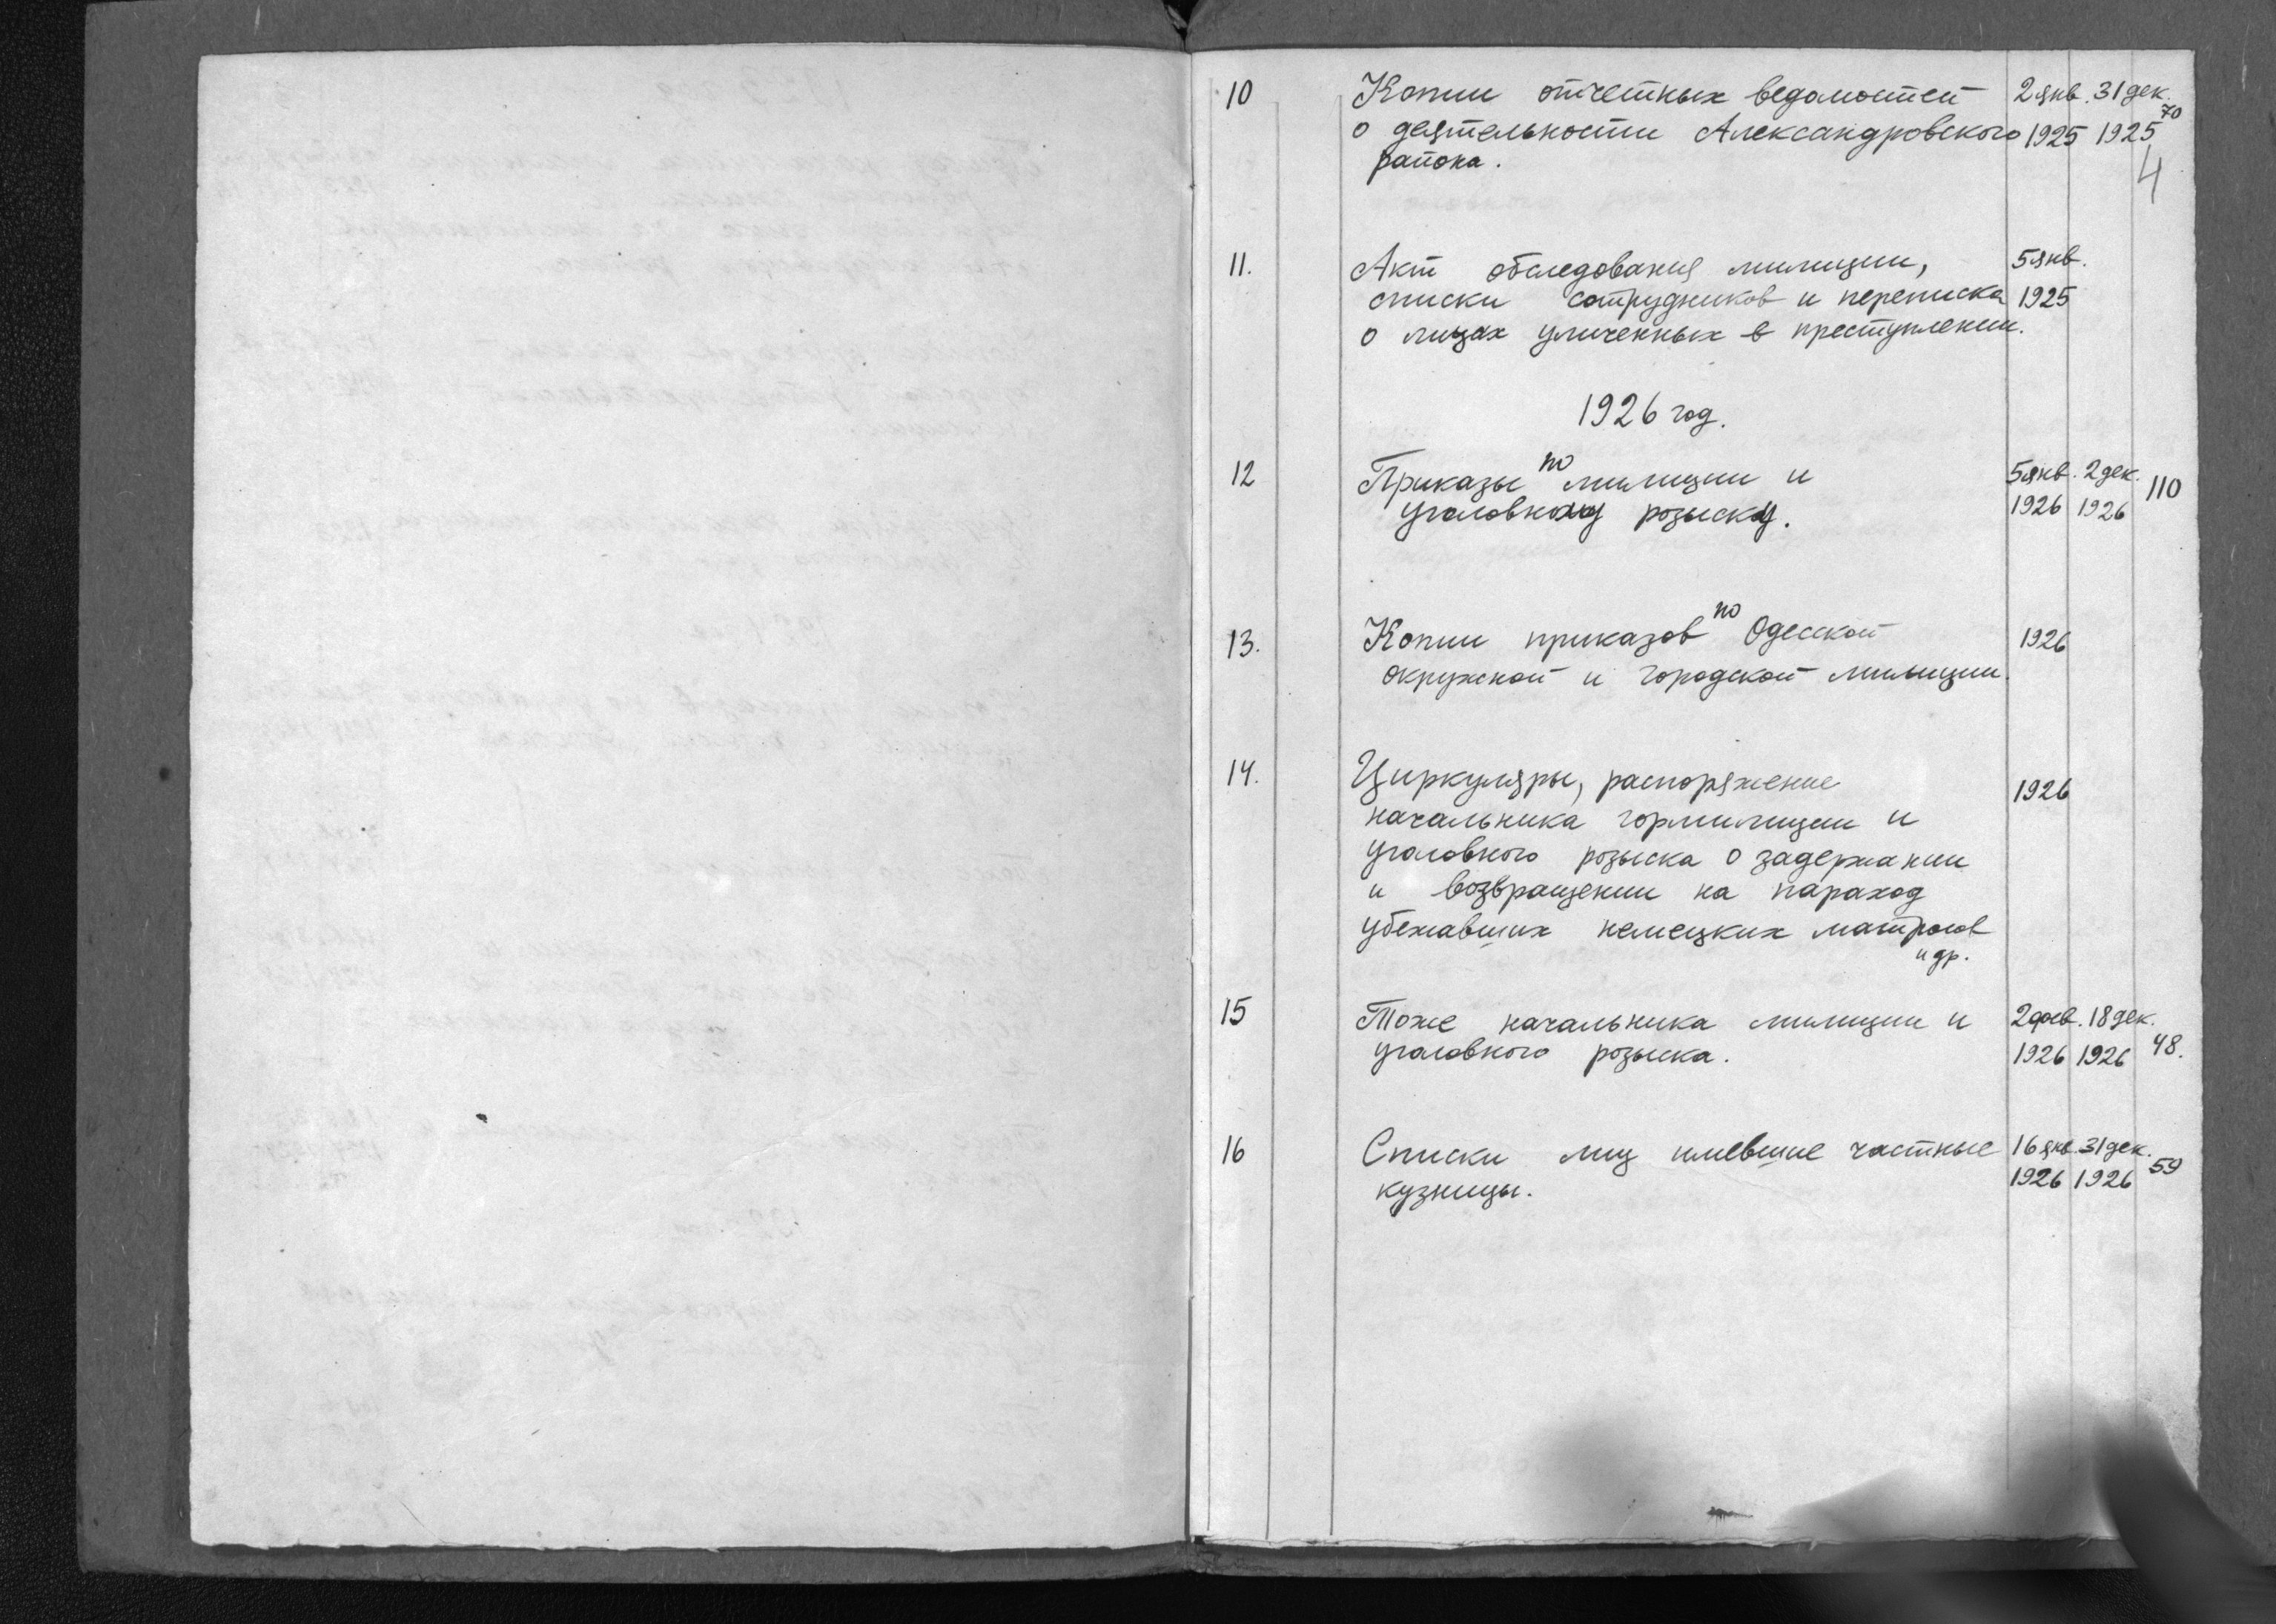 10 Копии отчетных ведомостей 2 янв. 31 дек.
о деятельности Александровского 1925 1925 70
района. 4
11. Акт обследования милиции, 5 янв.
списки сотрудников и переписка 1925
о лицах уличенных в преступлении.
1926 год.
12 Приказы по милиции и 5 янв. 2 дек. 110
уголовному розыску. 1926 1926
13. Копии приказов по Одесской 1926
окружной и городской милиции.
14. Циркуляры, распоряжение 1926
начальника гормилиции и
уголовного розыска о задержании
и возвращении на параход
убежавших немецких матросов
и др.
15 Тоже начальника милиции и 2 фев. 18 дек.
уголовного розыска. 1926 1926 48.
16 Списки лиц имевшие частные 16 янв. 31 дек.
кузницы. 1926 1926 59